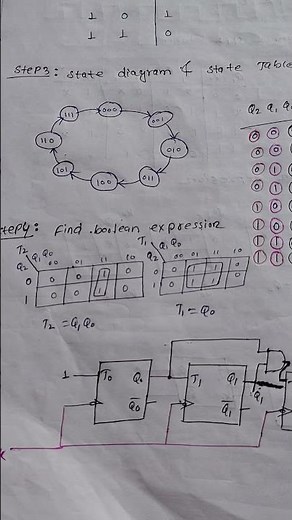 1 0 1
1 1 0
Step3: state diagram & state Table
000
001
010
011
100
101
110
111
Q2 Q1
0 0
0 0
0 1
0 1
1 0
1 0
1 1
1 1
Step4: Find boolean expression
T2 Q1Q0
Q2 00 01 11 10
0 0 0 1 0
1 0 0 1 0
T1 Q1Q0
Q2 00 01 11 10
0 0 1 1 0
1 0 1 1 0
T2 = Q1Q0
T1 = Q0
1 T0 Q0 T1 Q1
Q1
Q̅0 Q̅1